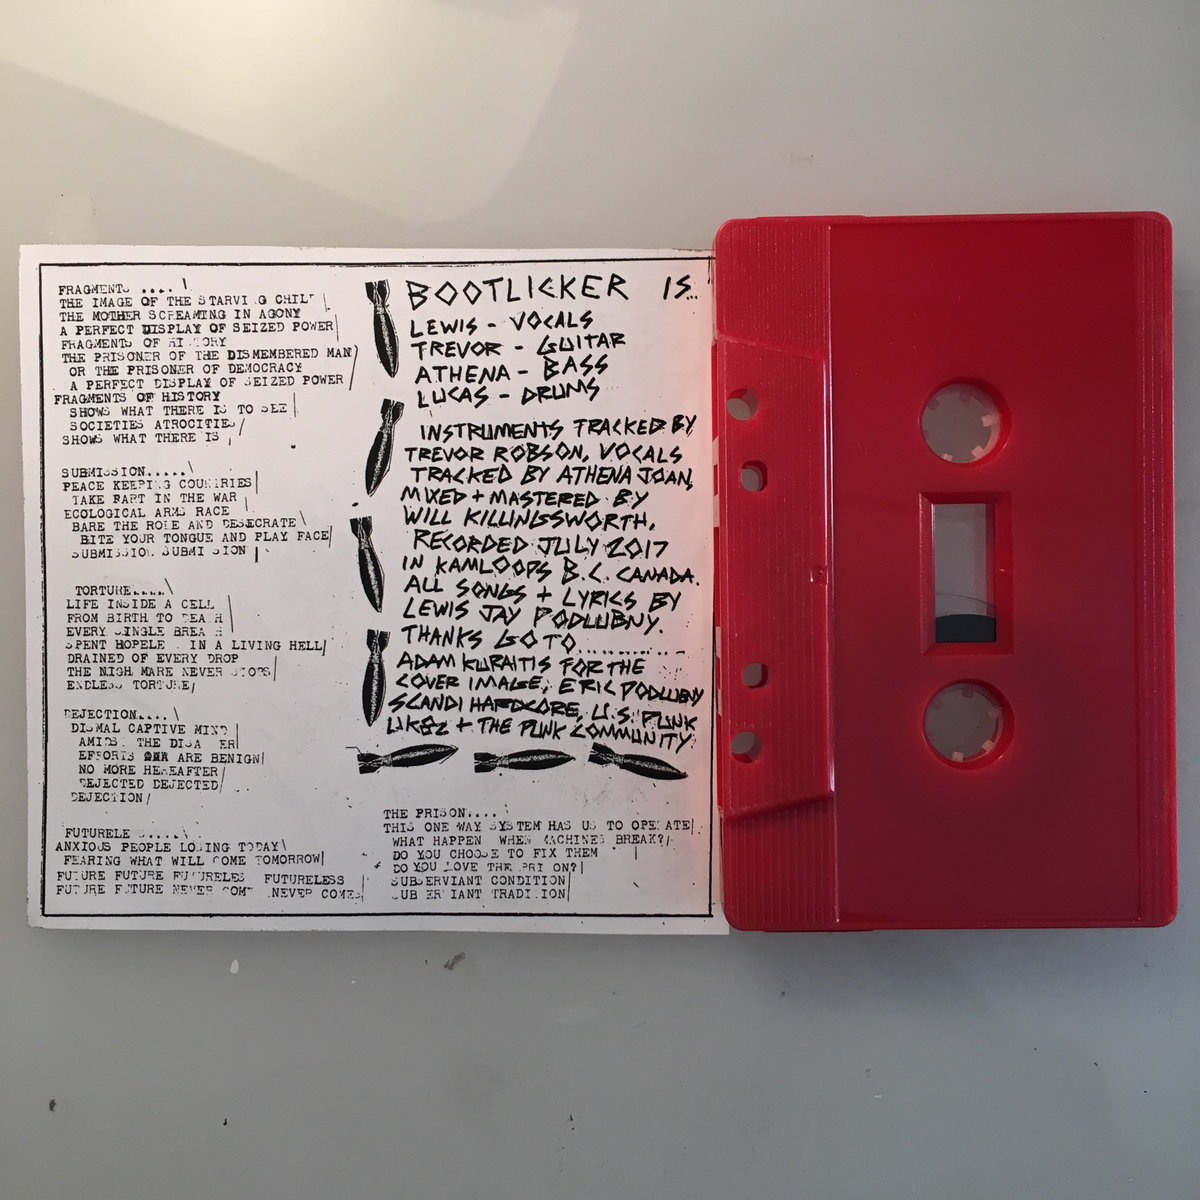 FRAGMENTS .... \
THE IMAGE OF THE STARVING CHILD
THE MOTHER SCREAMING IN AGONY
A PERFECT DISPLAY OF SEIZED POWER
FRAGMENTS OF HISTORY
THE PRISONER OF THE DISMEMBERED MAN
OR THE PRISONER OF DEMOCRACY
A PERFECT DISPLAY OF SEIZED POWER
FRAGMENTS OF HISTORY
SHOWS WHAT THERE IS TO SEE
SOCIETIES ATROCITIES
SHOWS WHAT THERE IS
SUBMISSION.....\
PEACE KEEPING COUNTRIES
TAKE PART IN THE WAR
ECOLOGICAL ARMS RACE
BARE THE ROLE AND DESECRATE \
BITE YOUR TONGUE AND PLAY FACE
SUBMISSION SUBMISSION
TORTURE....\
LIFE INSIDE A CELL
FROM BIRTH TO DEATH
EVERY SINGLE BREATH
SPENT HOPELESS IN A LIVING HELL
DRAINED OF EVERY DROP
THE NIGHTMARE NEVER STOPS
ENDLESS TORTURE
DEJECTION.... \
DISMAL CAPTIVE MIND
AMIDST THE DISASTER
EFFORTS ARE BENIGN
NO MORE HEREAFTER
DEJECTED DEJECTED
DEJECTION
FUTURELESS.....\
ANXIOUS PEOPLE LOSING TODAY\
FEARING WHAT WILL COME TOMORROW
FUTURE FUTURE FUTURELESS FUTURELESS
FUTURE FUTURE NEVER COMES NEVER COMES
BOOTLICKER IS...
LEWIS - VOCALS
TREVOR - GUITAR
ATHENA - BASS
LUCAS - DRUMS
INSTRUMENTS TRACKED BY
TREVOR ROBSON, VOCALS
TRACKED BY ATHENA JOAN,
MIXED + MASTERED BY
WILL KILLINGSWORTH,
RECORDED JULY 2017
IN KAMLOOPS B.C. CANADA.
ALL SONGS + LYRICS BY
LEWIS JAY PODLUBNY.
THANKS GO TO..............
ADAM KURAITIS FOR THE
COVER IMAGE, ERIC PODLUBNY
SCANDI HARDCORE, U.S. PUNK
UK82 + THE PUNK COMMUNITY
THE PRISON.... \
THIS ONE WAY SYSTEM HAS US TO OPERATE
WHAT HAPPENS WHEN MACHINES BREAK?
DO YOU CHOOSE TO FIX THEM
DO YOU LOVE THE PRISON?
SUBSERVIANT CONDITION
SUBSERVIANT TRADITION